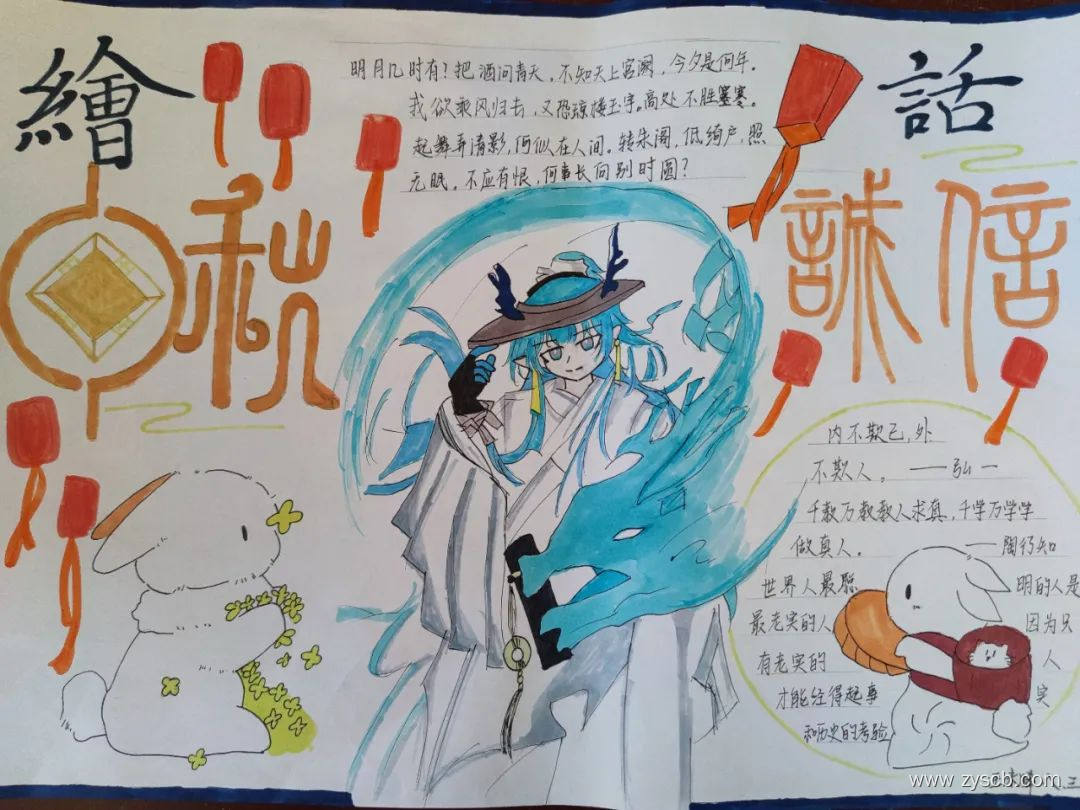 繪
話
中秋
誠信
明月几时有?把酒问青天。不知天上宫阙,今夕是何年。
我欲乘风归去,又恐琼楼玉宇。高处不胜寒。
起舞弄清影,何似在人间。转朱阁,低绮户,照
无眠。不应有恨,何事长向别时圆?
内不欺己,外
不欺人。——弘一
千教万教教人求真,千学万学学
做真人。——陶行知
世界人最聪明的人是
最老实的人因为只
有老实的人
才能经得起事实
和历史的考验
www.zyscb.com